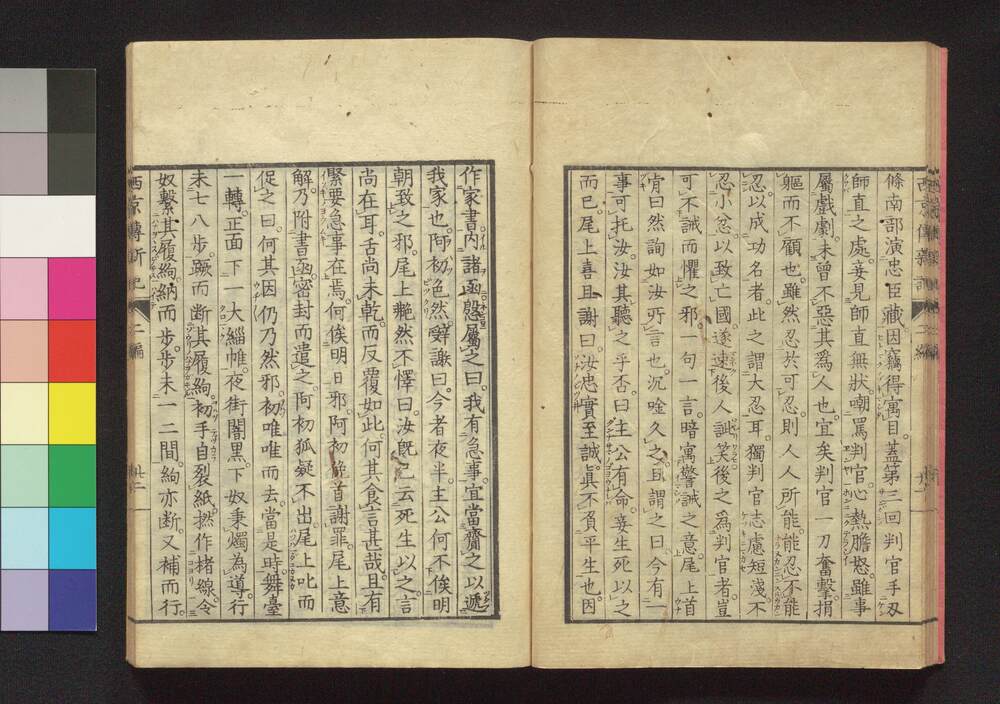 條南部演忠臣藏因竊得寓目蓋第三回判官手刃
師直之處妾見師直無狀嘲罵判官心熱膽怒雖事
屬戲劇未曾不惡其爲人也宜矣判官一刀奮擊捐
軀而不顧也雖然忍於可忍則人人所能能忍不能
忍以成功名者此之謂大忍耳獨判官志慮短淺不
忍小忿以致亡國遂速後人誹笑後之爲判官者豈
可不誡而懼之邪一句一言暗寓警誡之意尾上首
肯曰然詢如汝所言也沉唫久之且謂之曰今有一
事可托汝汝其聽之乎否曰主公有命妾生死以之
而已尾上喜且謝曰汝忠實至誠眞不負平生也因
作家書內諸函慇屬之曰我有急事宜當齎之以遞
我家也阿初色然辭謝曰今者夜半主公何不俟明
朝致之邪尾上艴然不懌曰汝旣已云死生以之言
尚在耳舌尚未乾而反覆如此何其食言甚哉且有
緊要急事在焉何俟明日邪阿初俛首謝罪尾上意
解乃附書函密封而遣之阿初狐疑不出尾上叱而
促之曰何其因仍乃然邪初唯唯而去當是時舞臺
一轉正面下一大緇帷夜街闇黑下奴秉燭為導行
未七八步蹶而斷其履絇初手自裂紙撚作楮線令
奴繫其履絇納而步步未一二間絇亦断又補而行
西京傳新記 二編